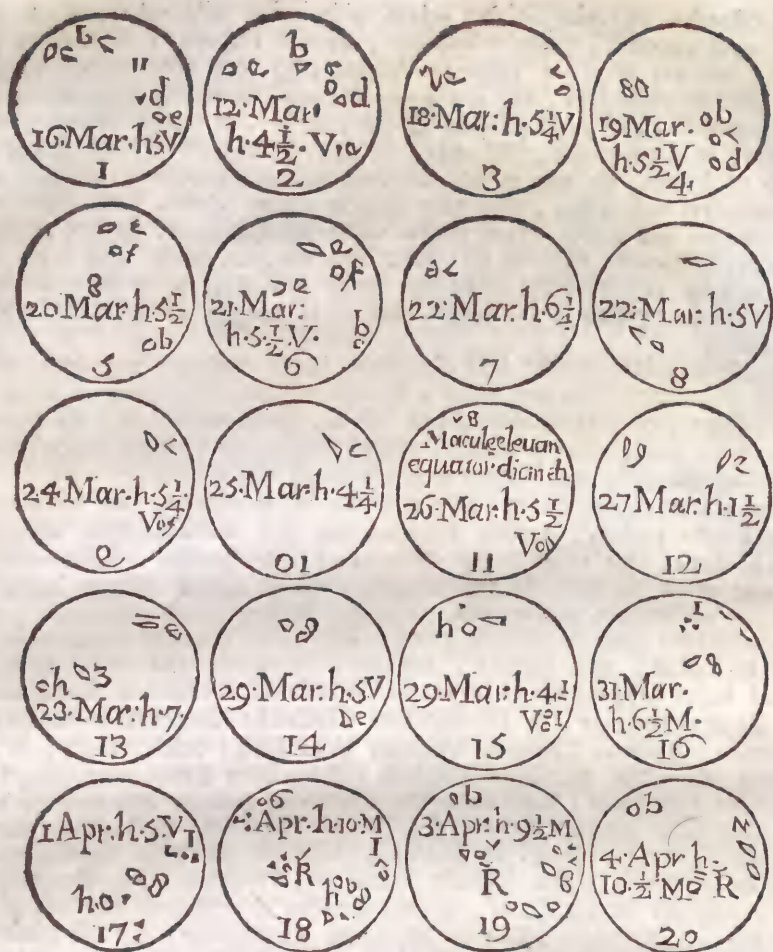 b
c c
11
d
e
16·Mar·h5V
1
b
e c
d
12·Mar·
h·4½·V·a
2
c
18·Mar:h·5¼V
3
80
19Mar· b
c
h·5½V d
4
e
f
8
20·Mar·h·5½
b
5
e
f
e
21·Mar:
h·5·½·V· b
c
6
c
22·Mar:h·6¼
7
22·Mar:h·5V
8
c
24·Mar·h·5¼·
Vof
e
c
25·Mar·h·4¼
01
8
Maculeeleuan
equator·dicineh
26·Mar:h·5½
11
g 2
27Mar:h·1½
12
e
h 3
23·Mar:h·7·
13
9
29·Mar:h·5V
De
14
h
29·Mar:h·4½
15
I
8
31·Mar·
h·6½M·
16
1Apr:h·5·V I
8
h
17
6
Apr:h·10·M
I
R
h b
8
18
b
3·Apr:h·9½M
R
6
19
b
z
4·Apr h·
10·½·M R
20